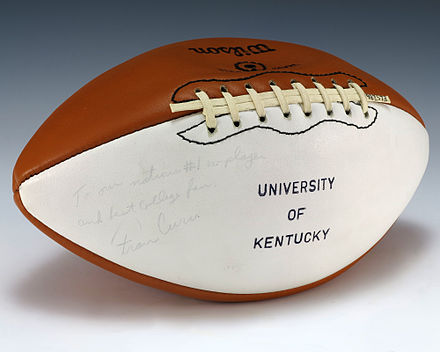 Wilson
To our nation's #1 ex-player
and best college fan.
Fran Curci
UNIVERSITY
OF
KENTUCKY